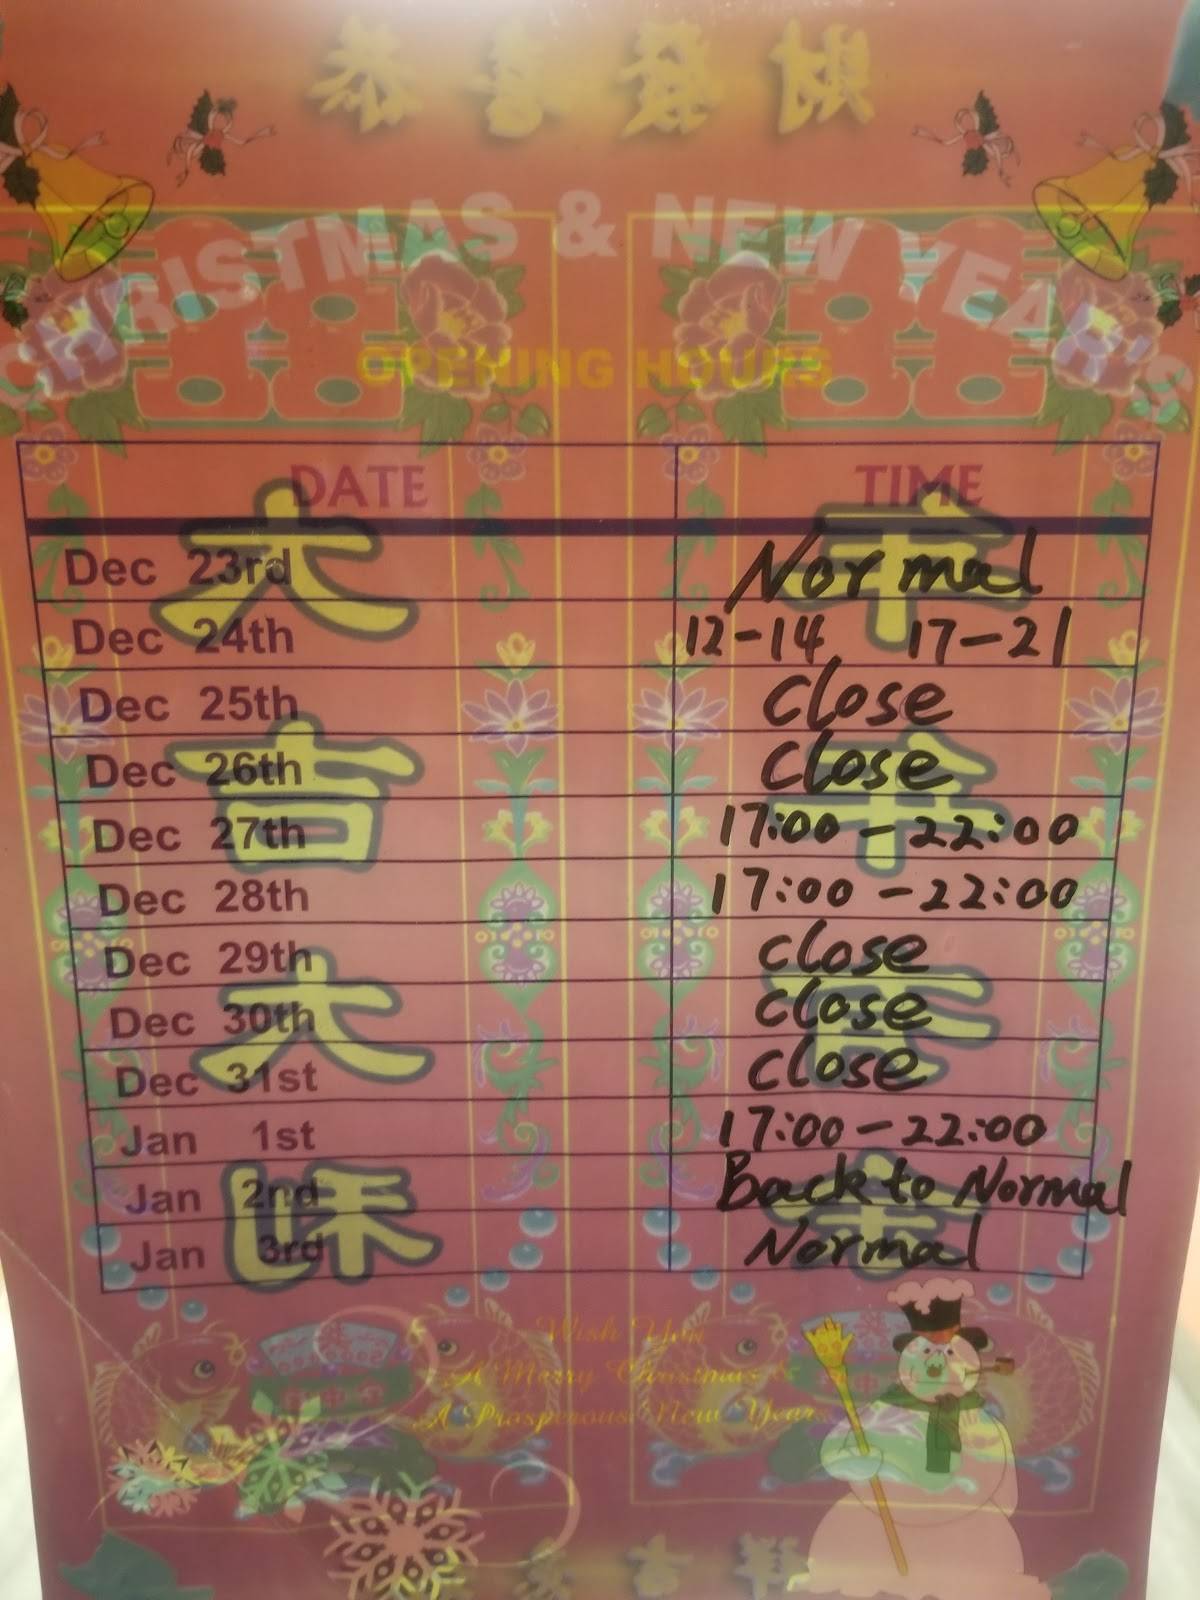 恭喜發財
CHRISTMAS & NEW YEAR'S
OPENING HOURS
DATE TIME
Dec 23rd Normal
Dec 24th 12-14 17-21
Dec 25th Close
Dec 26th Close
Dec 27th 17:00-22:00
Dec 28th 17:00-22:00
Dec 29th Close
Dec 30th Close
Dec 31st Close
Jan 1st 17:00-22:00
Jan 2nd Back to Normal
Jan 3rd Normal
大吉大利
年年有余
Wish You
A Merry Christmas &
A Prosperous New Year
吉祥